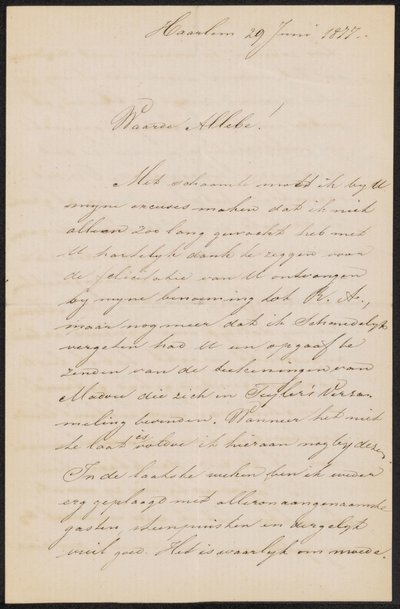 Haarlem 29 Juni 1877.
Waarde Allebé!
Met schaamte moet ik by U
myne excuses maken dat ik niet
alleen zoo lang gewacht heb met
U hartelyk dank te zeggen voor
de felicitatie van U ontvangen
by myne benoeming tot R. A.,
maar nog meer dat ik schandelyk
vergeten had U een opgaaf te
zenden van de teekeningen van
Madou die zich in Teyler's Verza
meling bevinden. Wanneer het niet
te laat is voldoe ik hieraan nog by deze.
In de laatste weken ben ik weder
erg geplaagd met alleronaangenaamste
gasten, steenpuisten en dergelyk
vuil goed. Het is waarlyk om moede